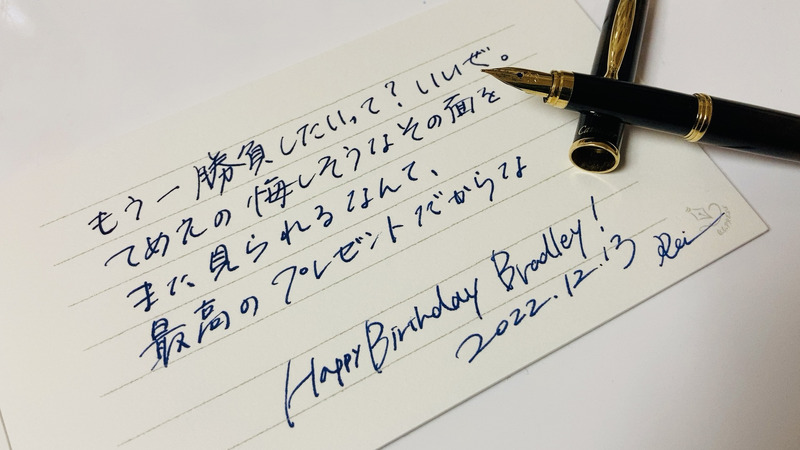 もう一勝負したいって？いいぜ。
てめえの悔しそうなその面を
また見られるなんて、
最高のプレゼントだからな
Happy Birthday Bradley!
2022.12.13 Rei